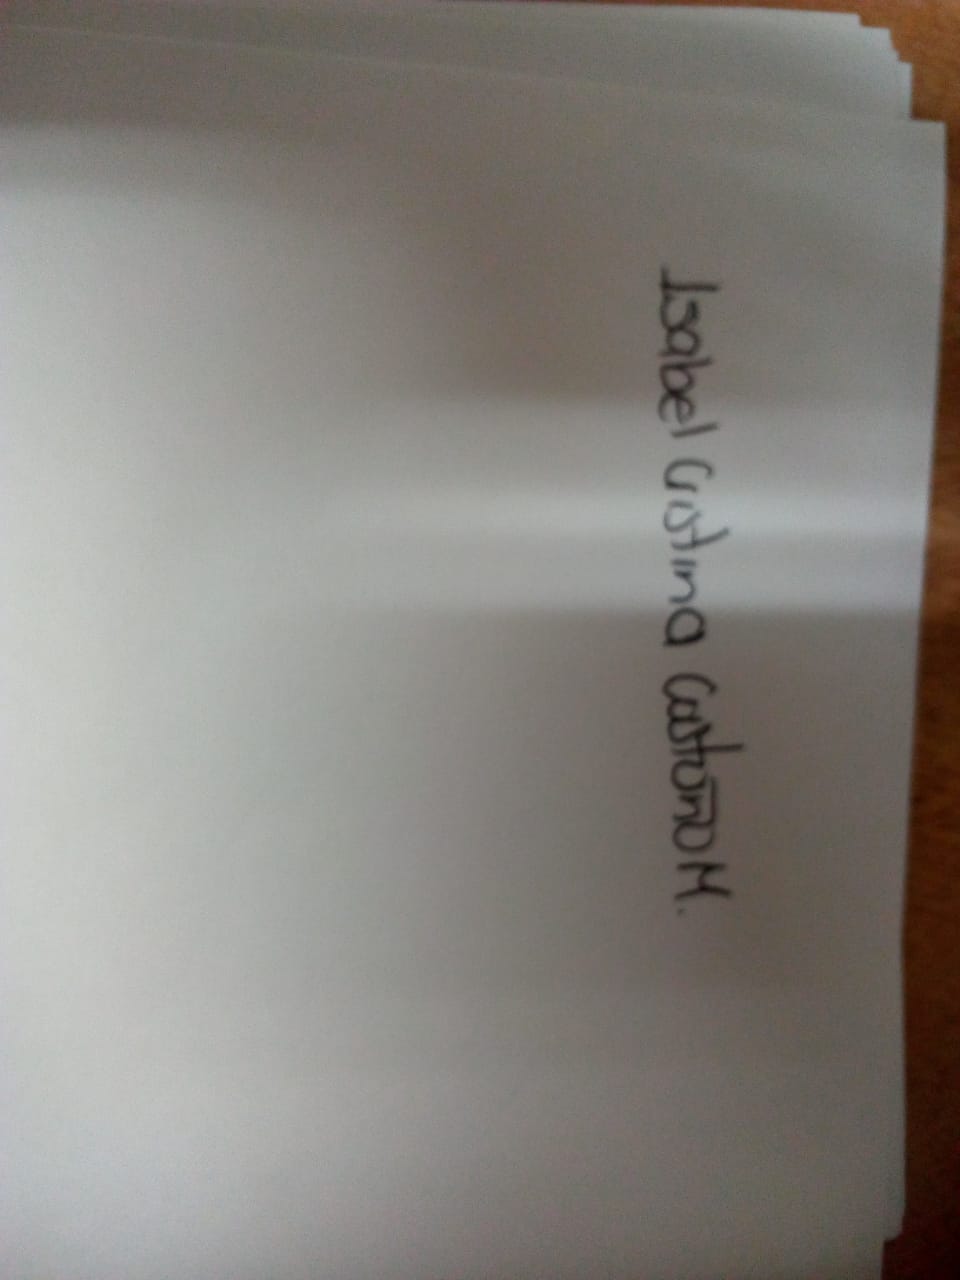 Isabel Cristina Castaño M.